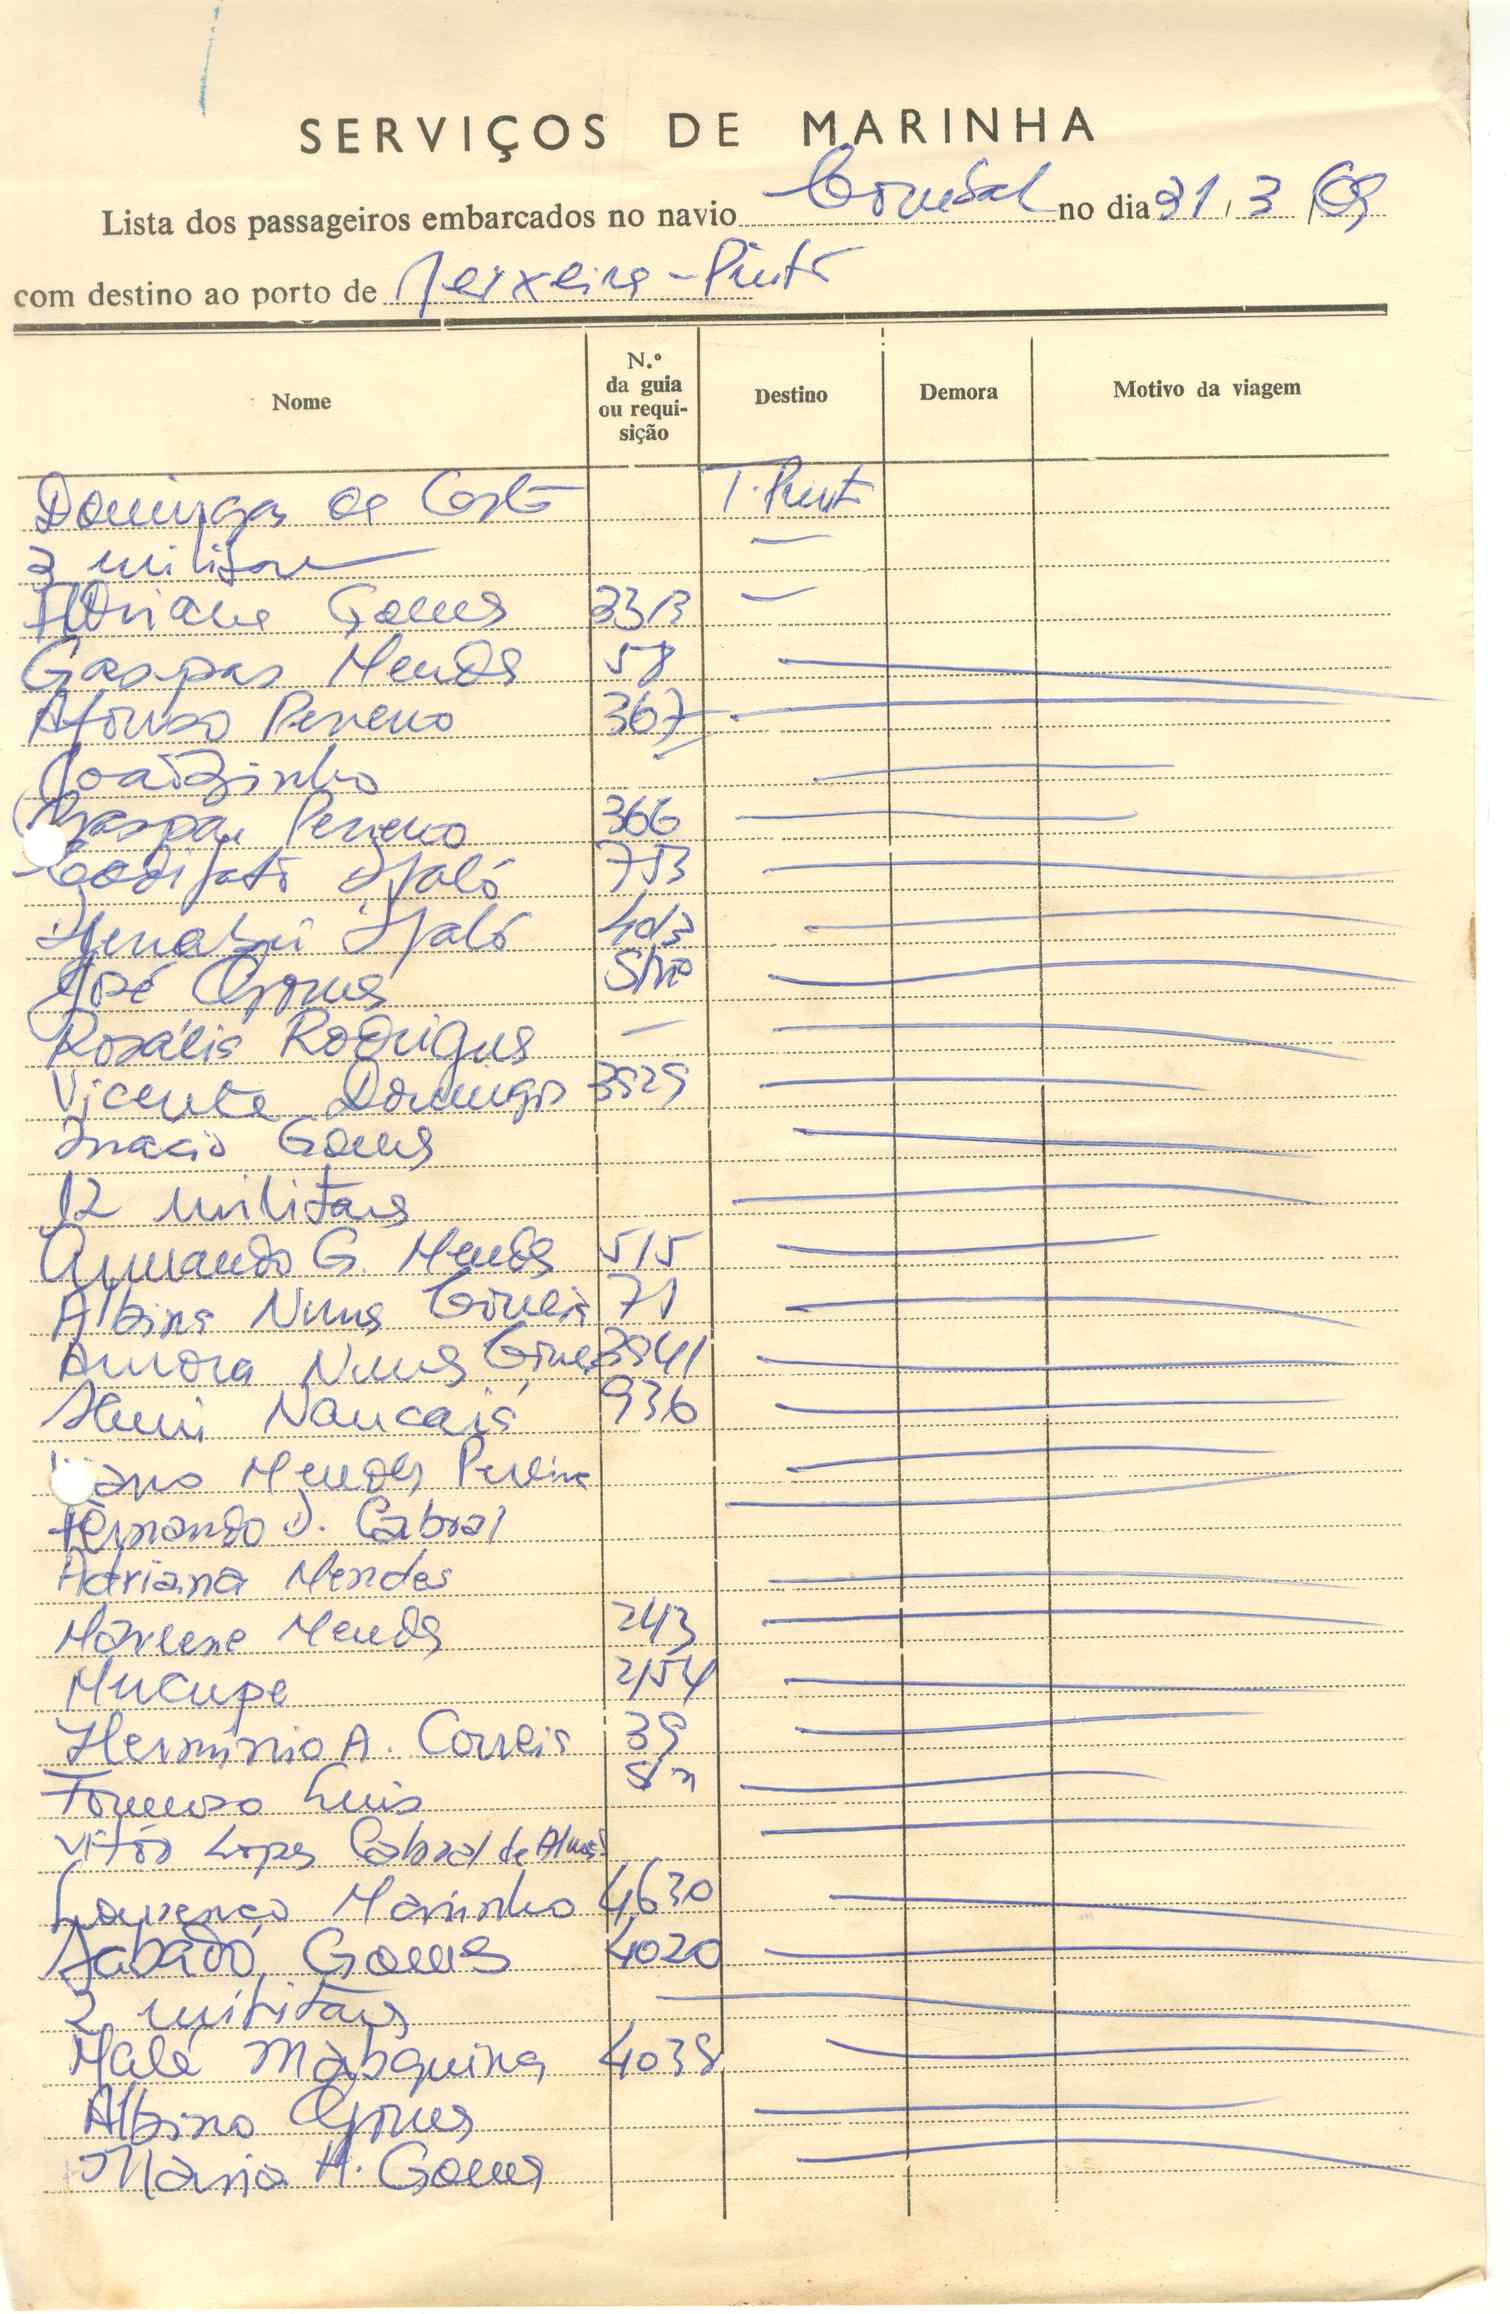 SERVIÇOS DE MARINHA
Lista dos passageiros embarcados no navio Corubal no dia 31, 3 69
com destino ao porto de Teixeira-Pinto
Nome
N.º da guia ou requi-sição
Destino
Demora
Motivo da viagem
Domingas da Costa T. Pinto
3 militares —
Adriano Gomes 3313 —
Gaspar Mendes 58
Afonso Pereira 367
Joãozinho
Gaspar Pereira 366
Jaló 753
Jaló 4013
José Gomes S/nº
Rosália Rodrigues —
Vicente Domingos 3929
Inácio Gomes
12 militares
Armando G. Mendes 515
Albina Nunes Correia 71
Aurora Nunes 3941
936
Mendes Pereira
Fernando D. Cabral
Adriana Mendes
Marlene Mendes 243
Mucupe 2154
Hermínio A. Correia 39
Formoso Luis S/n
Vitór Lopes Cabral de
Lourenço Marinho 4630
Sabadó Gomes 4020
2 militares
Malé 4038
Albino Gomes
Maria H. Gomes